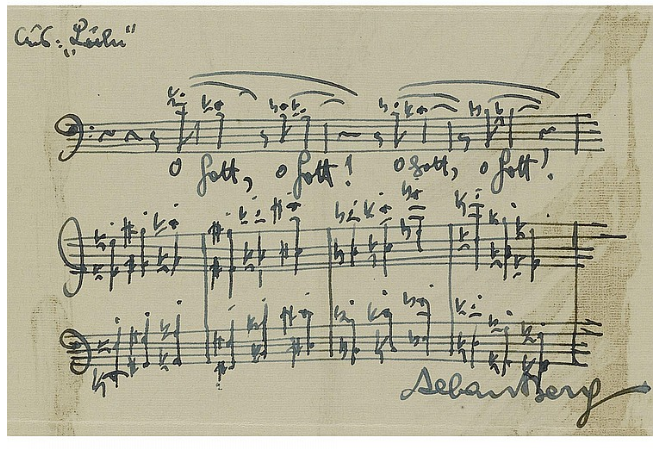 Aus: „Lulu"
O Gott, o Gott! O Gott, o Gott!
Alban Berg